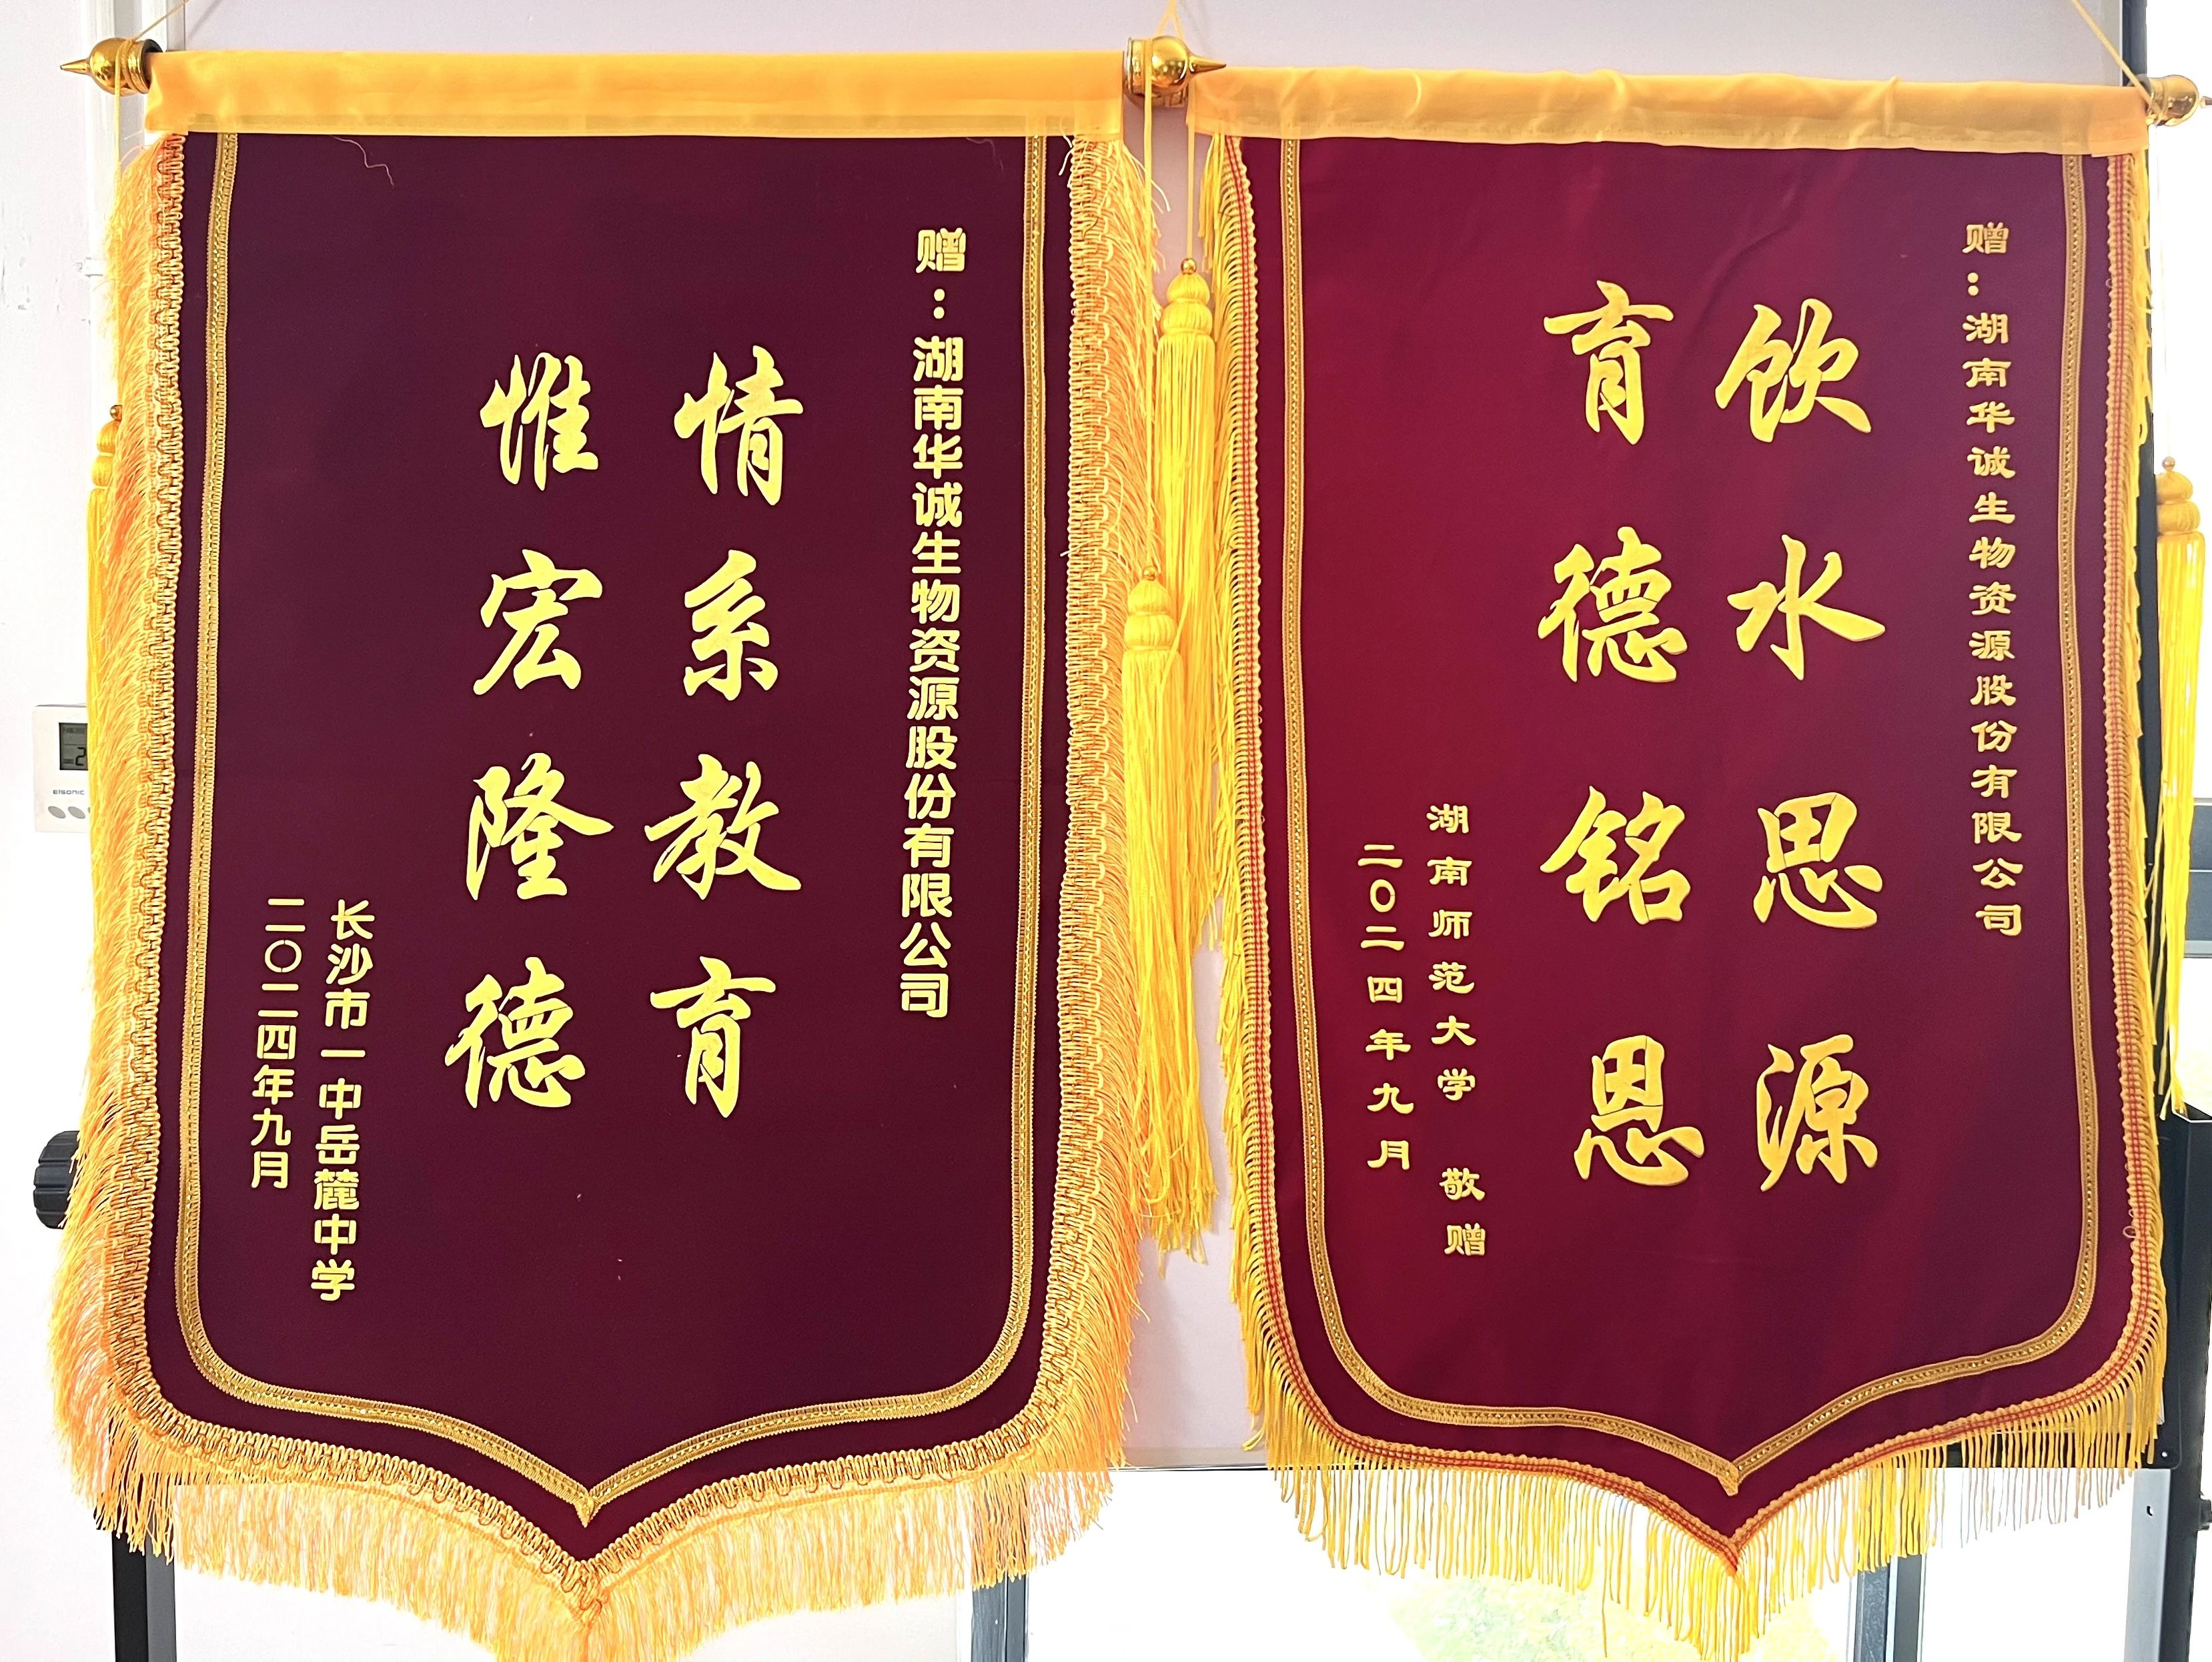 赠：湖南华诚生物资源股份有限公司
情系教育
惟宏隆德
长沙市一中岳麓中学
二〇二四年九月
赠：湖南华诚生物资源股份有限公司
饮水思源
育德铭恩
湖南师范大学 敬赠
二〇二四年九月